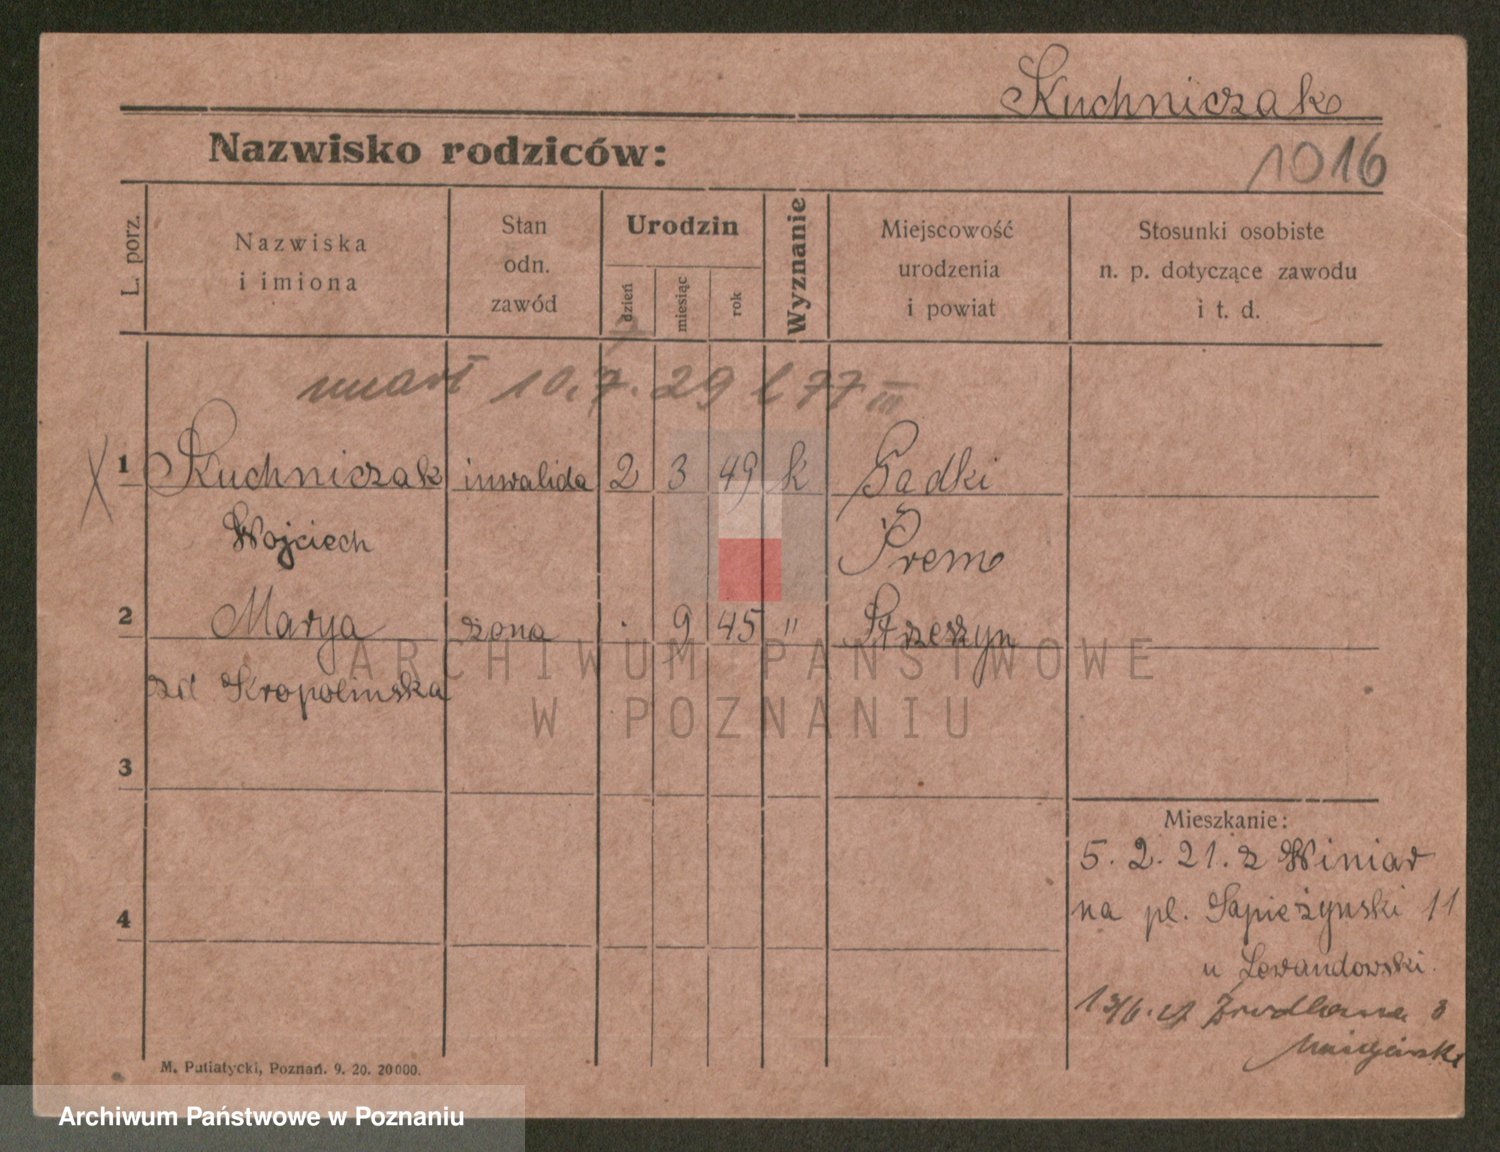 Kuchniczak
Nazwisko rodziców:
1016
L. porz.
Nazwiska
i imiona
Stan
odn.
zawód
Urodzin
dzień
miesiąc
rok
Wyznanie
Miejscowość
urodzenia
i powiat
Stosunki osobiste
n. p. dotyczące zawodu
i t. d.
umarł 10.7.29 l 77 III
X 1 Kuchniczak inwalida 2 3 49 k Gadki
Wojciech Śrem
2 Marya żona . 9 45 " Strzeszyn
zd Kropolinska
3
4
Mieszkanie:
5. 2. 21. z Winiar
na pl. Sapieżynski 11
u Lewandowski.
3
M. Putiatycki, Poznań. 9. 20. 20000.
ARCHIWUM PAŃSTWOWE
W POZNANIU
Archiwum Państwowe w Poznaniu